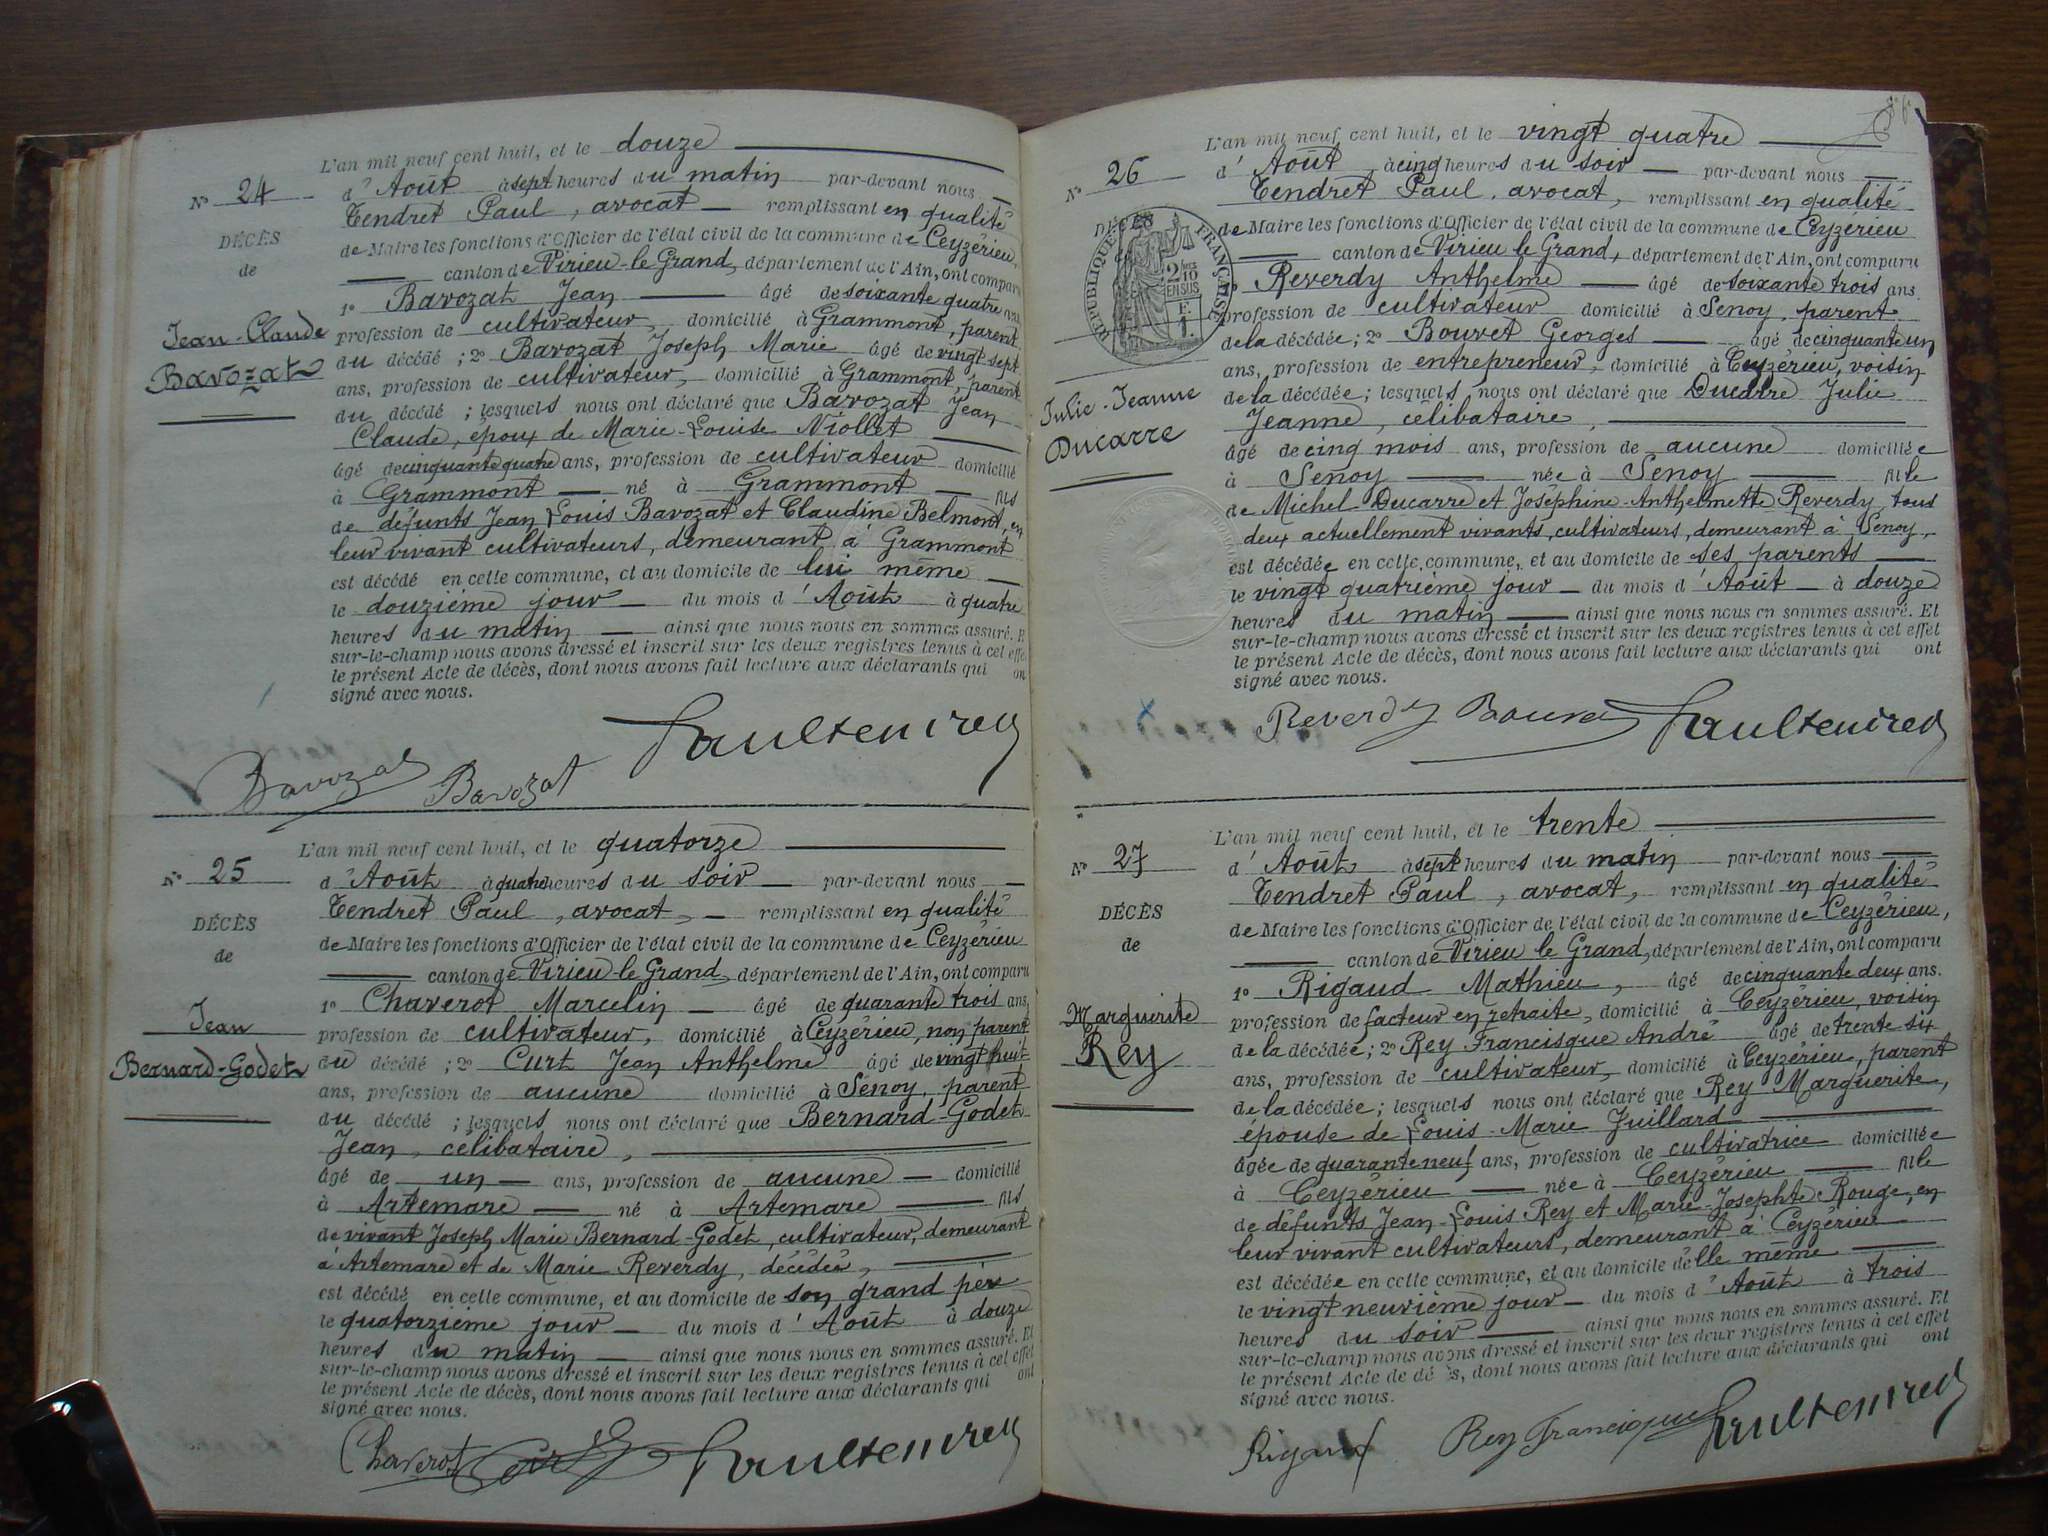 L'an mil neuf cent huit, et le douze
N° 24
d'Août à sept heures du matin par-devant nous
Tendret Paul, avocat remplissant en qualité
DÉCÈS
de Maire les fonctions d'Officier de l'état civil de la commune de Ceyzérieu,
de
canton de Virieu-le-Grand, département de l'Ain, ont comparu
1° Bavozat Jean âgé de soixante quatre ans
Jean-Claude
profession de cultivateur, domicilié à Grammont, parent
Bavozat
du décédé ; 2° Bavozat Joseph Marie âgé de vingt sept
ans, profession de cultivateur, domicilié à Grammont, parent
du décédé ; lesquels nous ont déclaré que Bavozat Jean
Claude, époux de Marie-Louise Niollet
âgé de cinquante quatre ans, profession de cultivateur domicilié
à Grammont né à Grammont fils
de défunts Jean Louis Bavozat et Claudine Belmont, en
leur vivant cultivateurs, demeurant à Grammont
est décédé en cette commune, et au domicile de lui même
le douzième jour du mois d'Août à quatre
heures du matin ainsi que nous nous en sommes assuré. E
sur-le-champ nous avons dressé et inscrit sur les deux registres tenus à cet effet
le présent Acte de décès, dont nous avons fait lecture aux déclarants qui on
signé avec nous.
Bavozat Bavozat Paul Tendret
L'an mil neuf cent huit, et le quatorze
N° 25
d'Août à quatre heures du soir par-devant nous
Tendret Paul, avocat, remplissant en qualité
DÉCÈS
de Maire les fonctions d'Officier de l'état civil de la commune de Ceyzérieu
de
canton de Virieu-le-Grand, département de l'Ain, ont comparu
1° Chaverot Marcelin âgé de quarante trois ans,
Jean
profession de cultivateur, domicilié à Ceyzérieu, non parent
Bernard-Godet
du décédé ; 2° Curt Jean Anthelme âgé de vingt huit
ans, profession de aucune domicilié à Senoy, parent
du décédé ; lesquels nous ont déclaré que Bernard-Godet
Jean, célibataire,
âgé de un ans, profession de aucune domicilié
à Artemare né à Artemare fils
de vivant Joseph Marie Bernard-Godet, cultivateur, demeurant
à Artemare et de Marie Reverdy, décédée,
est décédé en cette commune, et au domicile de son grand père
le quatorzième jour du mois d'Août à douze
heures du matin ainsi que nous nous en sommes assuré. Et
sur-le-champ nous avons dressé et inscrit sur les deux registres tenus à cet effet
le présent Acte de décès, dont nous avons fait lecture aux déclarants qui ont
signé avec nous.
Chaverot Curt Paul Tendret
L'an mil neuf cent huit, et le vingt quatre
N° 26
d'Août à cinq heures du soir par-devant nous
Tendret Paul, avocat, remplissant en qualité
DÉCÈS
de Maire les fonctions d'Officier de l'état civil de la commune de Ceyzérieu
canton de Virieu le Grand, département de l'Ain, ont comparu
RÉPUBLIQUE FRANÇAISE
2/10 EN SUS
Reverdy Anthelme âgé de soixante trois ans.
profession de cultivateur domicilié à Senoy, parent
de la décédée ; 2° Bouvet Georges âgé de cinquante un
ans, profession de entrepreneur, domicilié à Ceyzérieu, voisin
Julie-Jeanne
Ducarre
de la décédée ; lesquels nous ont déclaré que Ducarre Julie
Jeanne, célibataire,
âgé de cinq mois ans, profession de aucune domiciliée
à Senoy née à Senoy fille
de Michel Ducarre et Joséphine-Anthelmette Reverdy, tous
deux actuellement vivants, cultivateurs, demeurant à Senoy,
est décédée en cette commune, et au domicile de ses parents
le vingt quatrième jour du mois d'Août à douze
heures du matin ainsi que nous nous en sommes assuré. Et
sur-le-champ nous avons dressé et inscrit sur les deux registres tenus à cet effet
le présent Acte de décès, dont nous avons fait lecture aux déclarants qui ont
signé avec nous.
Reverdy Bouvet Paul Tendret
L'an mil neuf cent huit, et le trente
N° 27
d'Août à sept heures du matin par-devant nous
Tendret Paul, avocat, remplissant en qualité
DÉCÈS
de Maire les fonctions d'Officier de l'état civil de la commune de Ceyzérieu,
de
canton de Virieu le Grand, département de l'Ain, ont comparu
1° Rigaud Mathieu, âgé de cinquante deux ans.
Marguerite
profession de facteur en retraite, domicilié à Ceyzérieu, voisin
Rey
de la décédée ; 2° Rey Francisque André âgé de trente six
ans, profession de cultivateur, domicilié à Ceyzérieu, parent
de la décédée ; lesquels nous ont déclaré que Rey Marguerite,
épouse de Louis-Marie Juillard
âgée de quarante neuf ans, profession de cultivatrice domiciliée
à Ceyzérieu née à Ceyzérieu fille
de défunts Jean-Louis Rey et Marie-Josephte Rouge, en
leur vivant cultivateurs, demeurant à Ceyzérieu
est décédée en cette commune, et au domicile d'elle même
le vingt neuvième jour du mois d'Août à trois
heures du soir ainsi que nous nous en sommes assuré. Et
sur-le-champ nous avons dressé et inscrit sur les deux registres tenus à cet effet
le présent Acte de décès, dont nous avons fait lecture aux déclarants qui ont
signé avec nous.
Rigaud Rey Francisque Paul Tendret